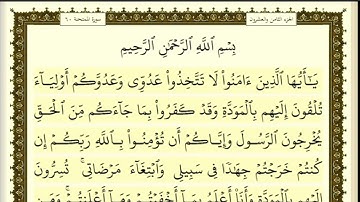 الجزء الثامن والعشرون
سورة الممتحنة ٦٠
بِسْمِ اللَّهِ الرَّحْمَٰنِ الرَّحِيمِ
يَـٰٓأَيُّهَا الَّذِينَ ءَامَنُوا۟ لَا تَتَّخِذُوا۟ عَدُوِّى وَعَدُوَّكُمْ أَوْلِيَآءَ
تُلْقُونَ إِلَيْهِم بِالْمَوَدَّةِ وَقَدْ كَفَرُوا۟ بِمَا جَآءَكُم مِّنَ الْحَقِّ
يُخْرِجُونَ الرَّسُولَ وَإِيَّاكُمْ أَن تُؤْمِنُوا۟ بِاللَّهِ رَبِّكُمْ إِن
كُنتُمْ خَرَجْتُمْ جِهَـٰدًا فِى سَبِيلِى وَابْتِغَآءَ مَرْضَاتِى تُسِرُّونَ
إِلَيْهِم بِالْمَوَدَّةِ وَأَنَا۠ أَعْلَمُ بِمَآ أَخْفَيْتُمْ وَمَآ أَعْلَنتُمْ وَمَن